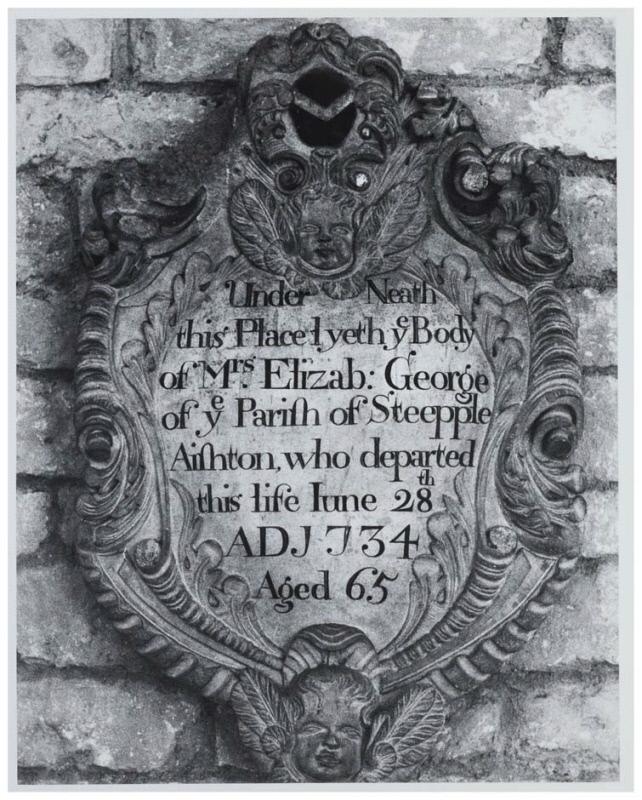 Under Neath
this Place lyeth yͤ Body
of Mʳˢ. Elizab: George
of yͤ Pariſh of Steepple
Aiſhton, who departed
this life Iune 28ᵗʰ
ADJ 734
Aged 65